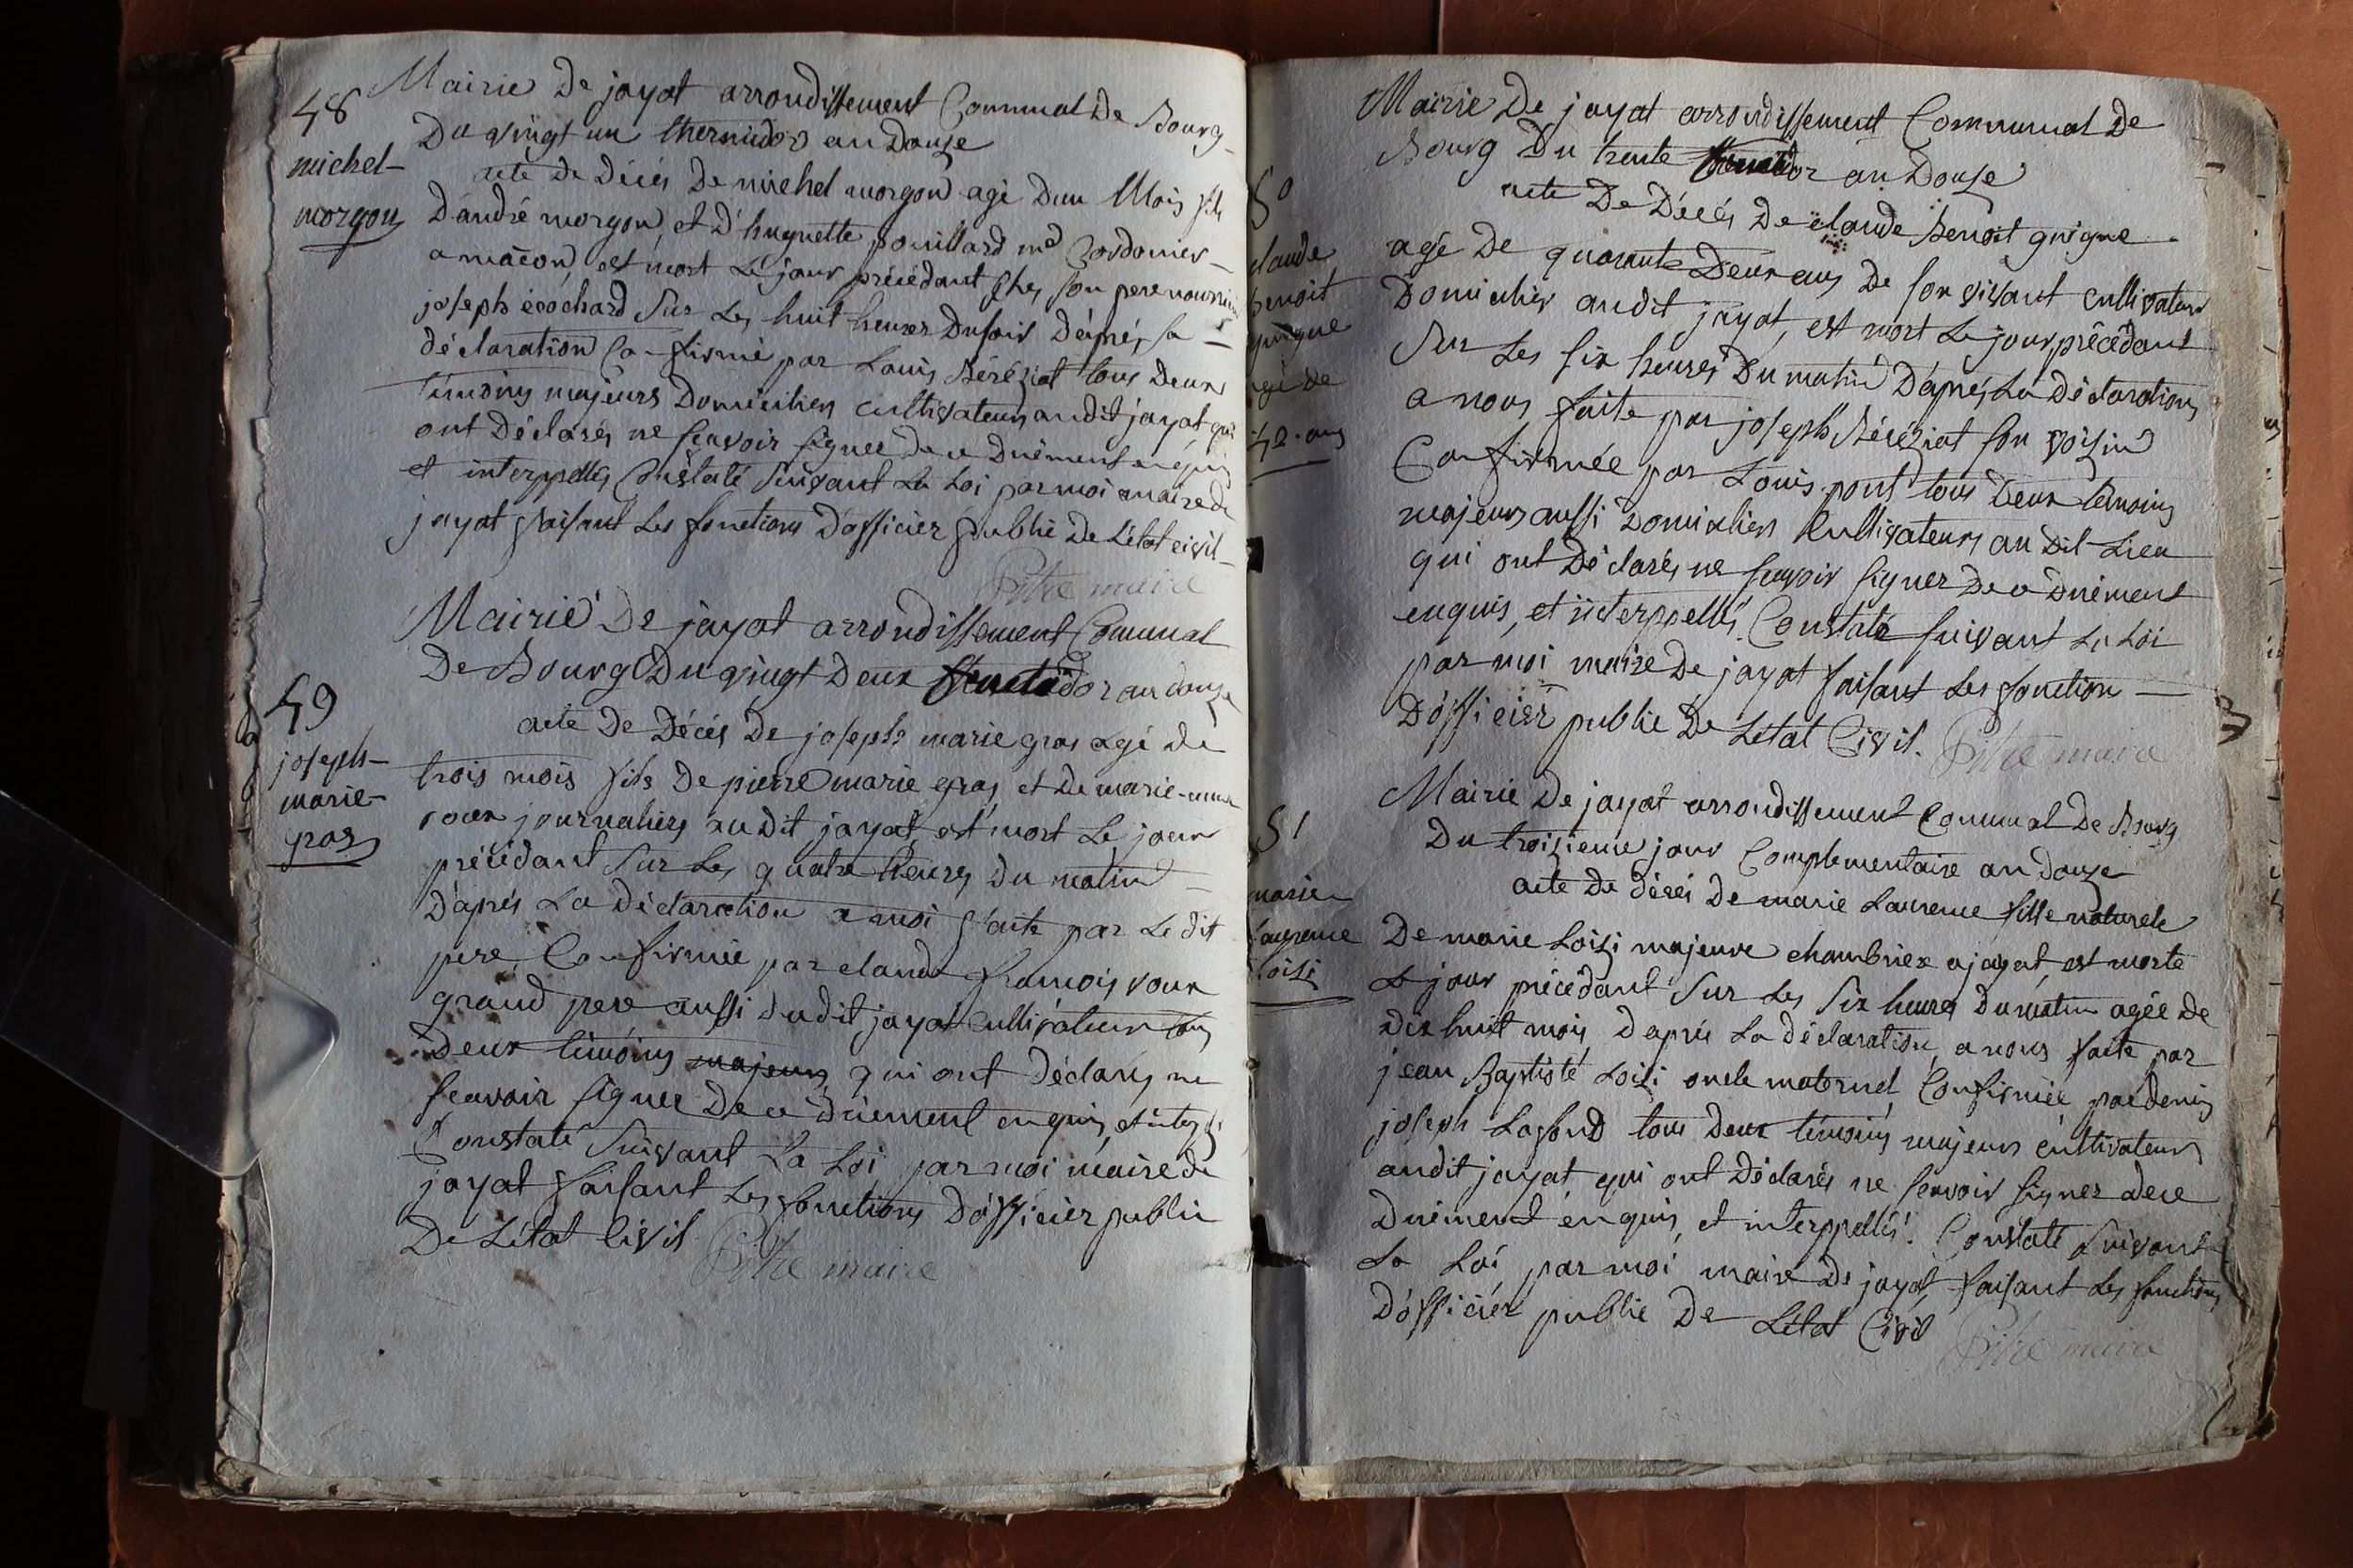 48
michel-
morgon
Mairie De jayat arrondissement Communal De Bourg
Du vingt un thermidor an Douze
acte de Décés De michel morgon agé Dun Mois fils
D'andré morgon, et D'huguette pouillard md Cordonier
a macon, est mort Le jour précédant chez son pere nourricier
joseph écochard Sur Les huit heures Du soir D'aprés sa
déclaration Confirmé par Louis Béréziat tous Deux
témoins majeurs Domiciliés cultivateurs audit jayat qui
ont Déclarés ne scavoir signer De ce Duément enquis
et interppellés Constaté Suivant La Loi par moi maire De
jayat faisant Les fonctions D'officier public De L'état civil
Pitre maire
49
joseph-
marie-
gras
Mairie De jayat arrondissement Communal
De Bourg Du vingt Deux fructidor an douze
acte De Décés De joseph marie gras agé De
trois mois fils De pierre marie gras et De marie
roux journaliers audit jayat, est mort Le jour
précédant Sur Les quatre heures Du matin
D'aprés La Déclaration a moi faite par Le dit
pere, Confirmée par claude francois roux
grand pere aussi Dudit jayat cultivateur tous
Deux témoins majeurs qui ont Déclarés ne
scavoir signer De ce Duement enquis, et
Constaté Suivant La Loi par moi maire De
jayat faisant Les fonctions D'officier public
De L'état Civil
Pitre maire
50
claude
benoit
guigue
agé De
42. ans
Mairie De jayat arrondissement Communal De
Bourg Du trente an Douze
acte De Décés De claude Benoit guigue
agé De quarante Deux ans De son vivant cultivateur
Domicilier audit jayat, est mort Le jour précédant
Sur Les six heures Du matin D'aprés La Déclaration
a nous faite par joseph Béréziat son voisin
Confirmée par Louis pont tous Deux témoins
majeurs aussi Domiciliers Cultivateurs au Dit Lieu
qui ont Déclarés ne scavoir signer De ce Duément
enquis, et interppellés Constaté suivant La Loi
par moi maire De jayat faisant Les fonction
D'officier public De L'état Civil.
Pitre maire
51
marie
Laurence
Loisi
Mairie De jayat arrondissement Communal De Bourg
Du troisieme jour Complementaire an Douze
acte De décés De marie Laurence fille naturele
De marie Loisi majeure chambriere a jayat, est morte
Le jour précédant Sur Les Six heures Du matin agée De
Dix huit mois, D'aprés La déclaration, a nous faite par
jean Baptiste Loisi oncle maternel Confirmée par denis
joseph Lafond tous Deux témoins majeurs cultivateurs
audit jayat qui ont Déclarés ne scavoir signer De ce
Duément enquis, et interppellés. Constaté Suivant
La Loi par moi maire De jayat faisant Les fonctions
D'officier public De L'état Civil
Pitre maire